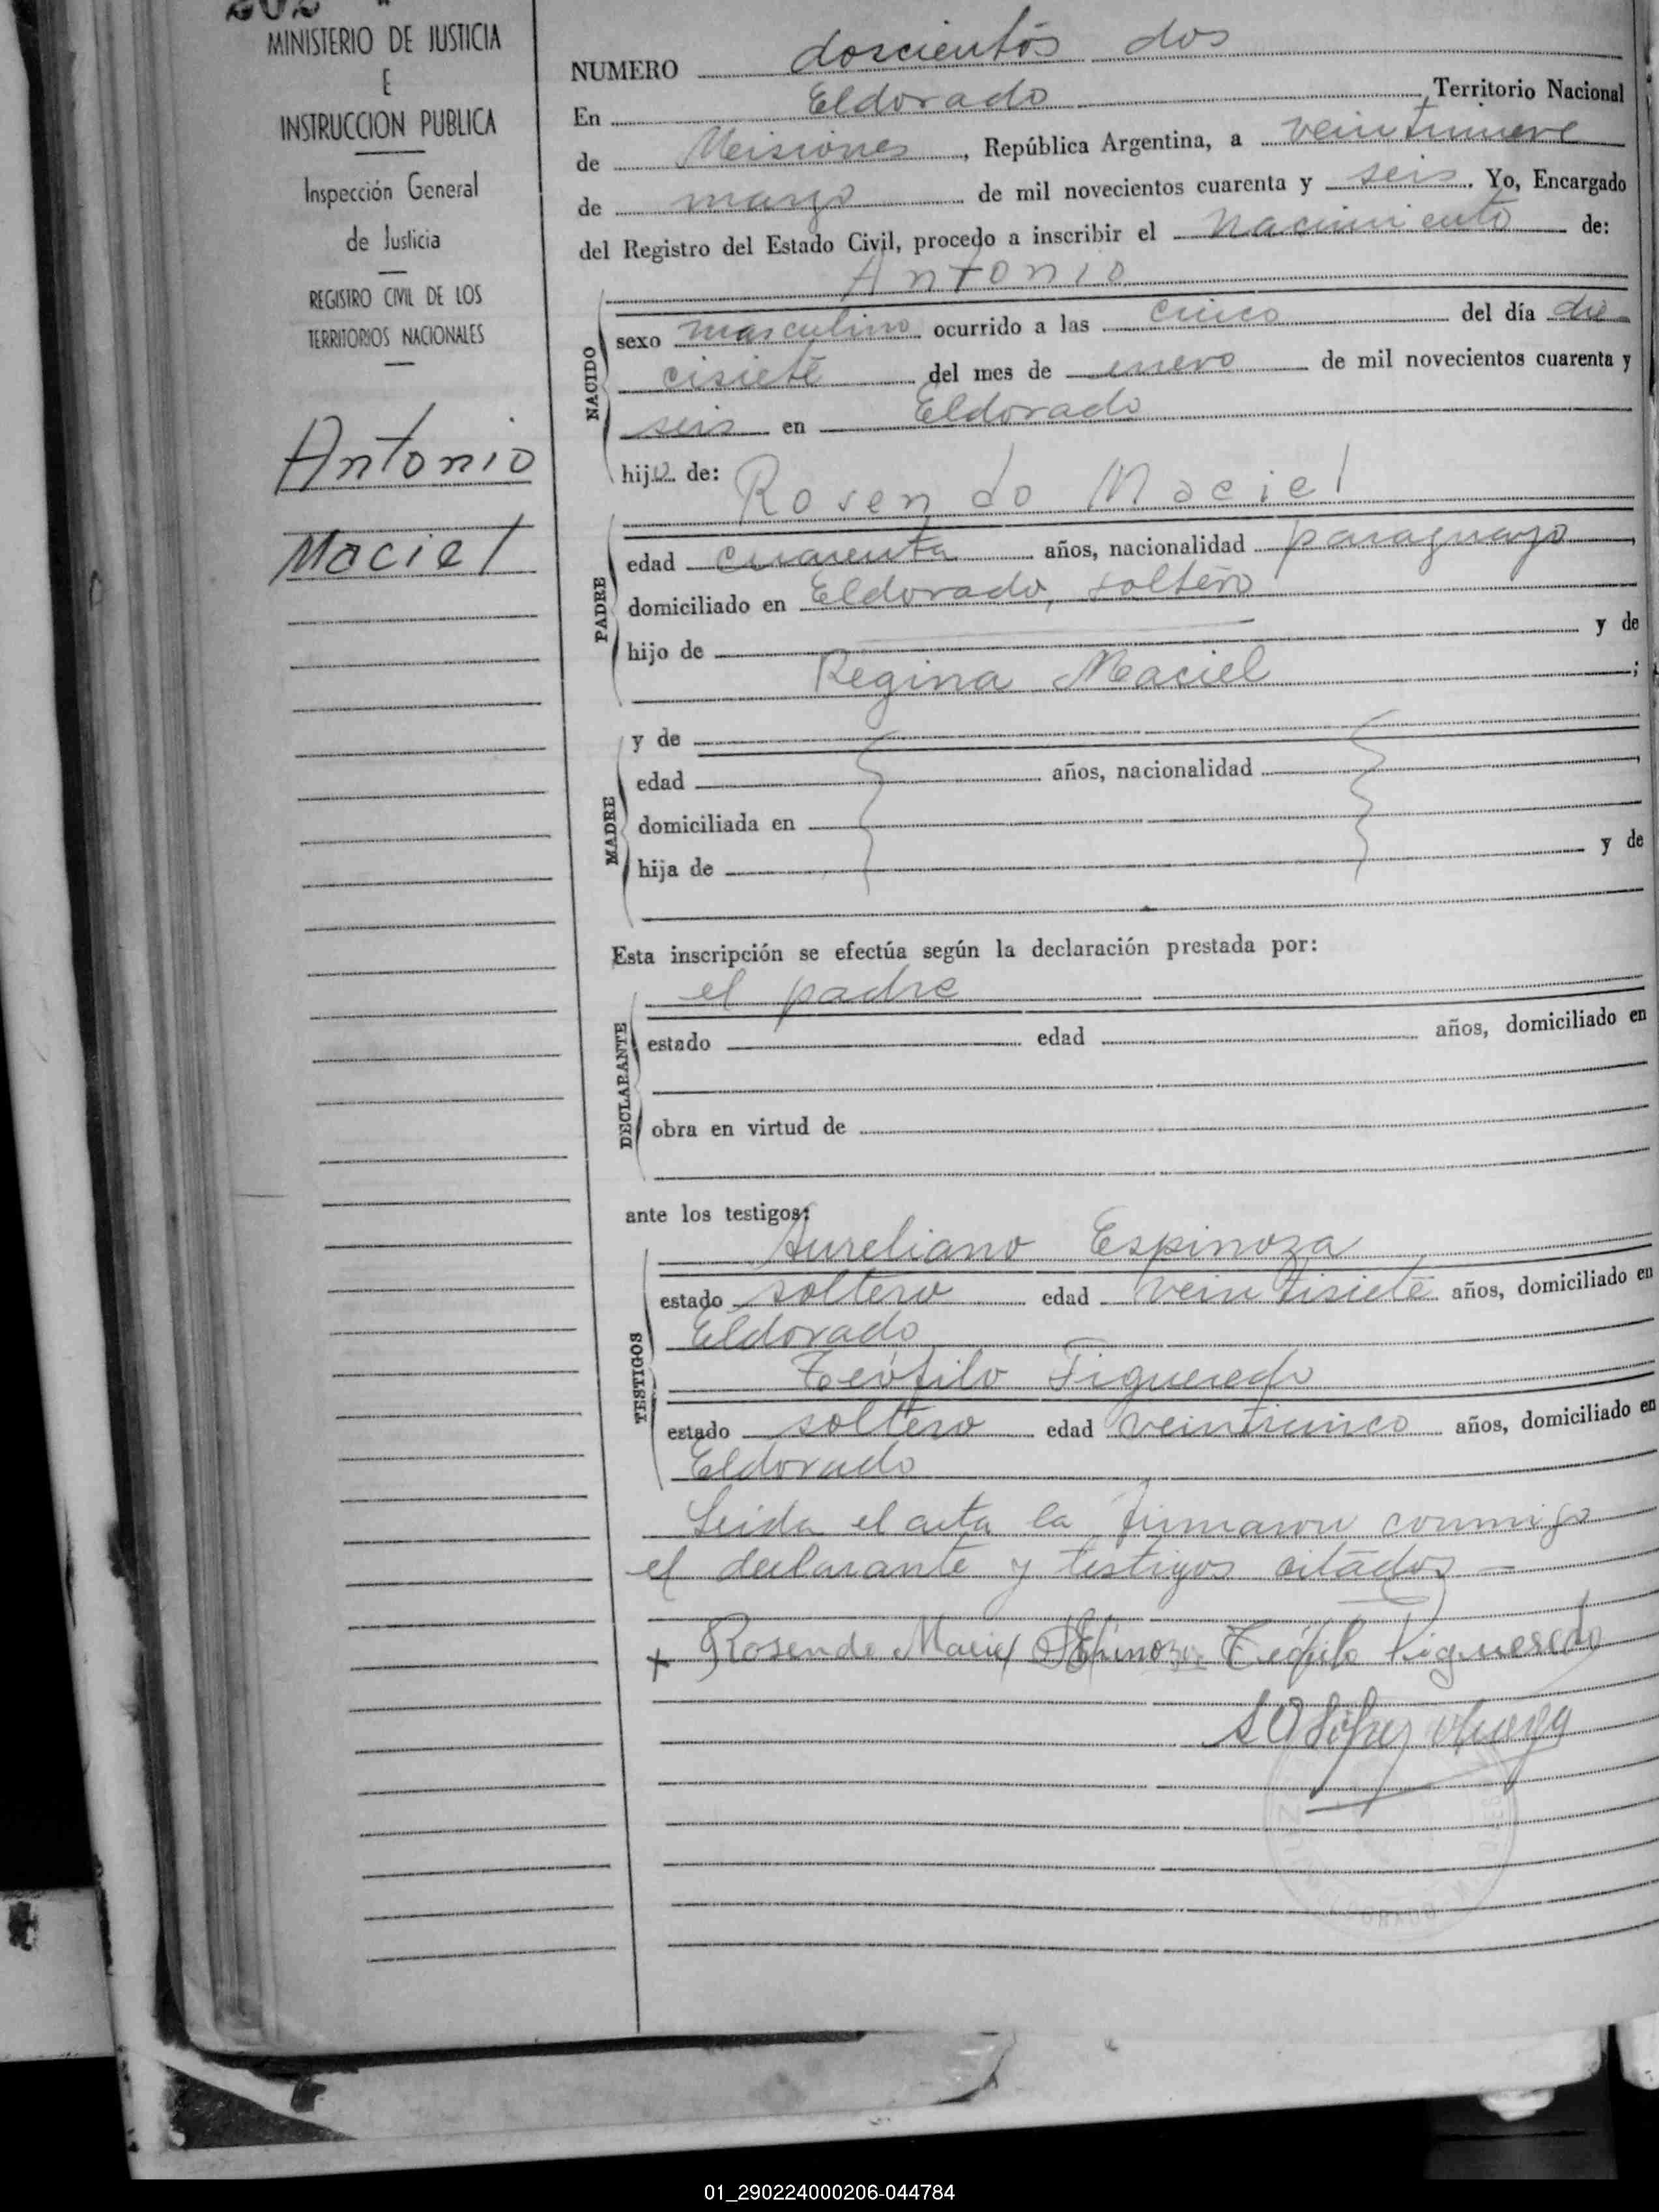 202
MINISTERIO DE JUSTICIA
E
INSTRUCCION PUBLICA
Inspección General
de Justicia
REGISTRO CIVIL DE LOS
TERRITORIOS NACIONALES
Antonio
Maciel
NUMERO doscientos dos
En Eldorado Territorio Nacional
de Misiones, República Argentina, a veintinueve
de marzo de mil novecientos cuarenta y seis. Yo, Encargado
del Registro del Estado Civil, procedo a inscribir el nacimiento de:
Antonio
NACIDO
sexo masculino ocurrido a las cinco del día die
cisiete del mes de enero de mil novecientos cuarenta y
seis en Eldorado
hijo de: Rosendo Maciel
PADRE
edad cuarenta años, nacionalidad paraguayo,
domiciliado en Eldorado, soltero
hijo de y de
Regina Maciel ;
MADRE
y de
edad años, nacionalidad ,
domiciliada en
hija de y de
Esta inscripción se efectúa según la declaración prestada por:
el padre
DECLARANTE
estado edad años, domiciliado en
obra en virtud de
ante los testigos:
Aureliano Espinoza
TESTIGOS
estado soltero edad veintisiete años, domiciliado en
Eldorado
Teófilo Figueredo
estado soltero edad veinticinco años, domiciliado en
Eldorado
Leida el acta la firmaron conmigo
el declarante y testigos citados
x Rosendo Maciel Espinoza Teófilo Figueredo
01_290224000206-044784